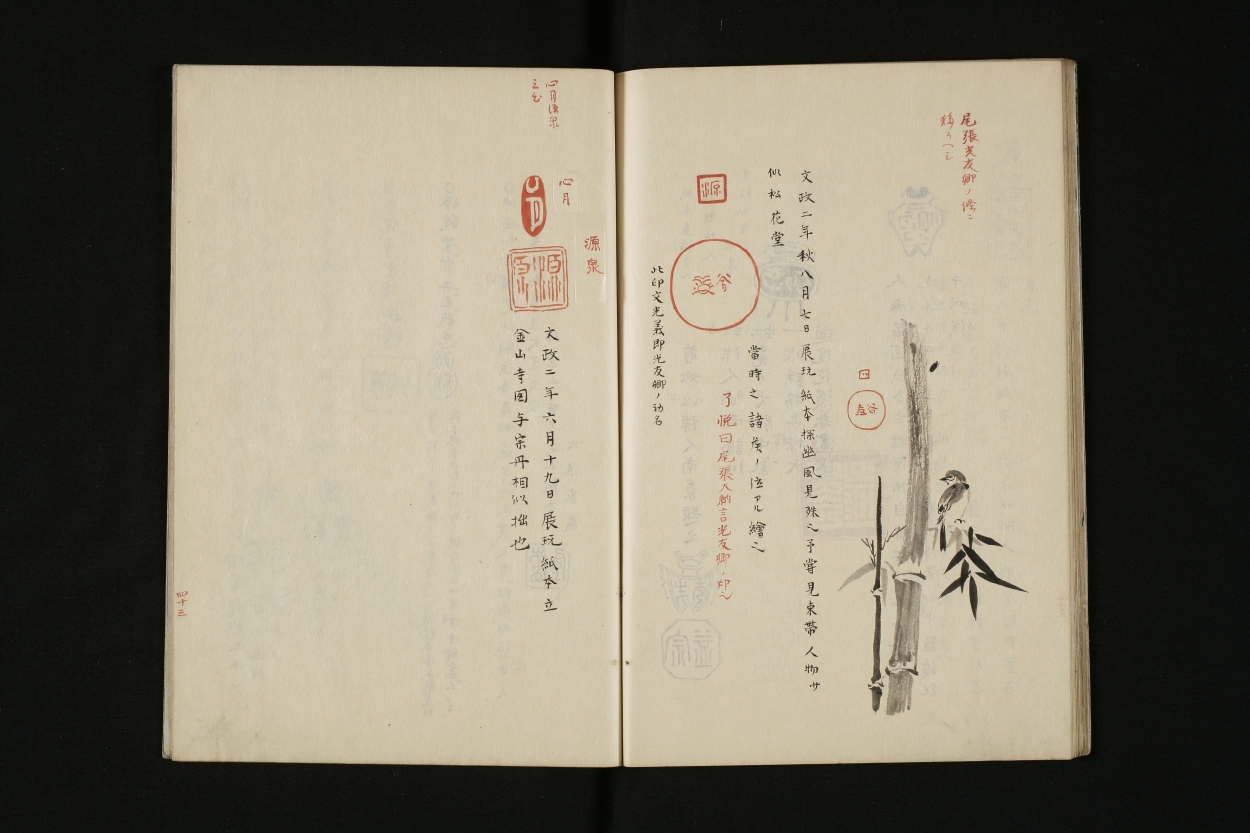 尾張光友卿ノ條ニ
移スヘシ
文政二年秋八月七日展玩紙本探幽風見殊之予嘗見束帶人物サ
似松花堂
源
當時之諸矦ノ位アル繪之
了悦曰尾張大納言光友卿ノ印之
此印文光義即光友卿ノ初名
心月源泉
心月
源泉
文政二年六月十九日展玩紙本立
金山寺図与宗丹相似拙也
四十三